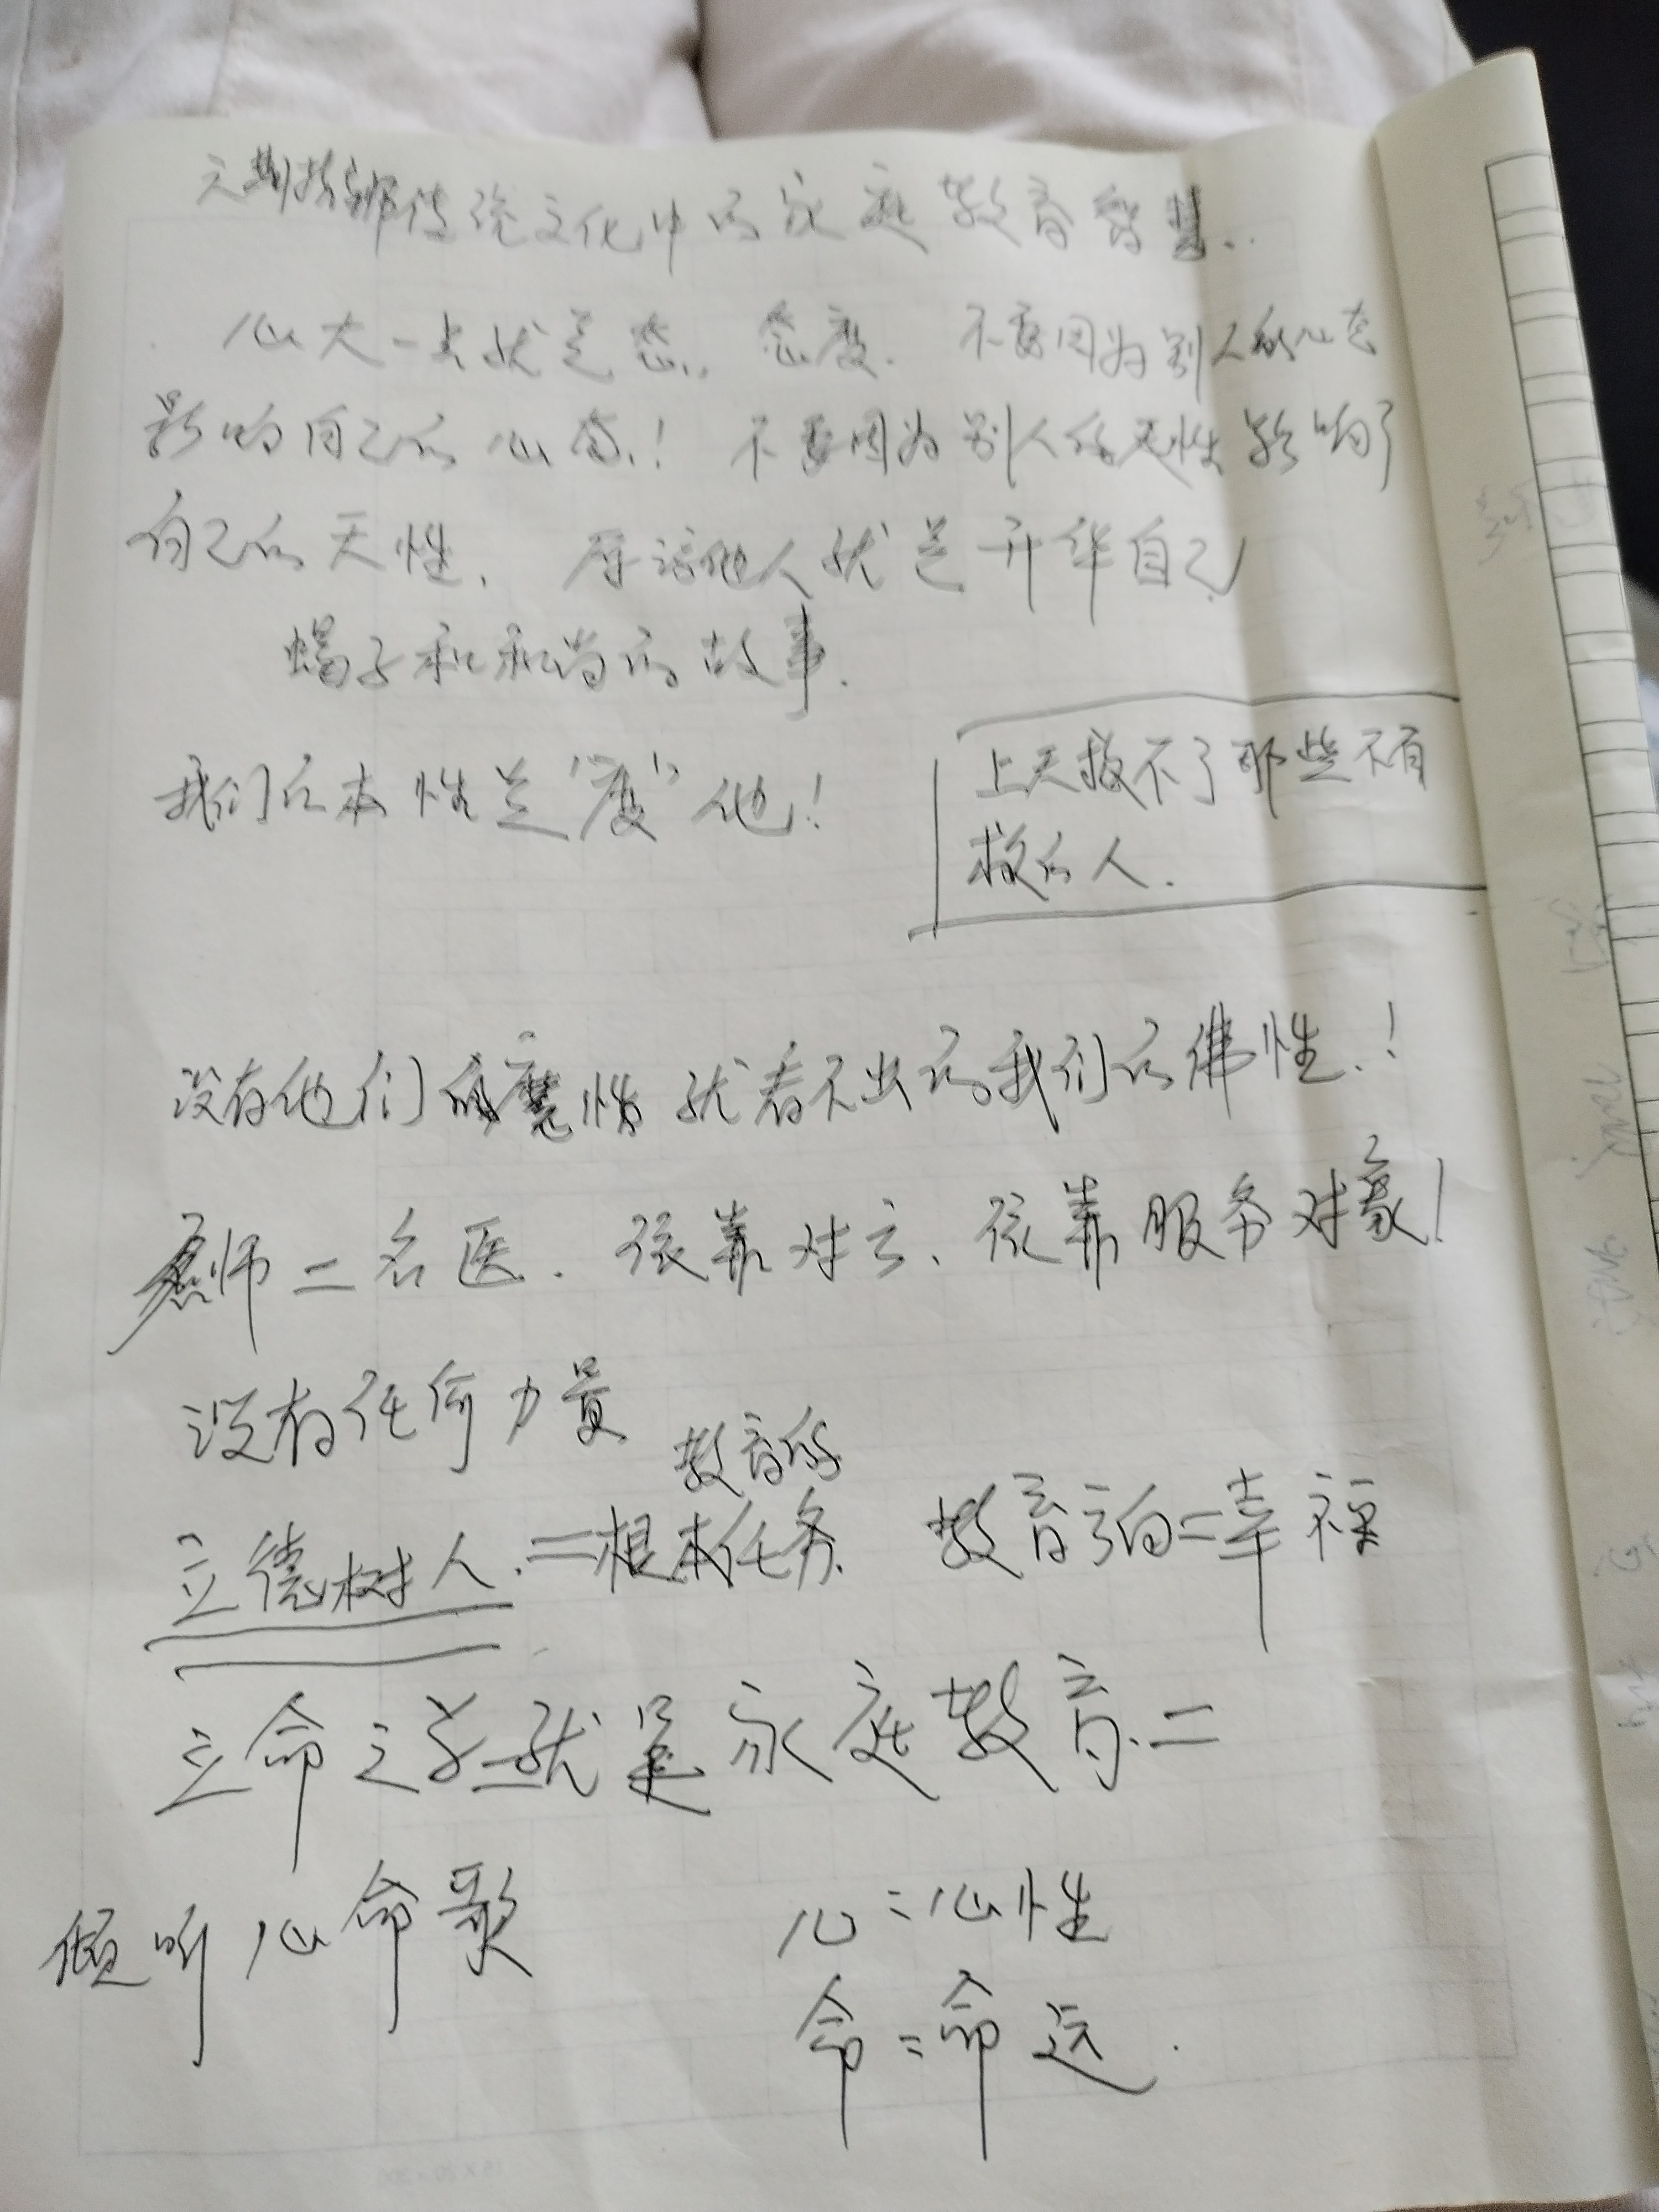 传统文化中的家庭教育智慧..
心大一点就是态.. 态度. 不要因为别人的心态
影响自己的心态! 不要因为别人的天性影响了
自己的天性. 原谅他人就是升华自己
蝎子和和尚的故事.
我们的本性是"度"他!
上天救不了那些不自
救的人.
没有他们的魔性就看不出的我们的佛性.!
师=名医. 依靠对方、依靠服务对象!
没有任何力量
教育的
立德树人.=根本任务. 教育 =幸福
立命之学就是家庭教育.=
倾听心命歌
心=心性
命=命运.